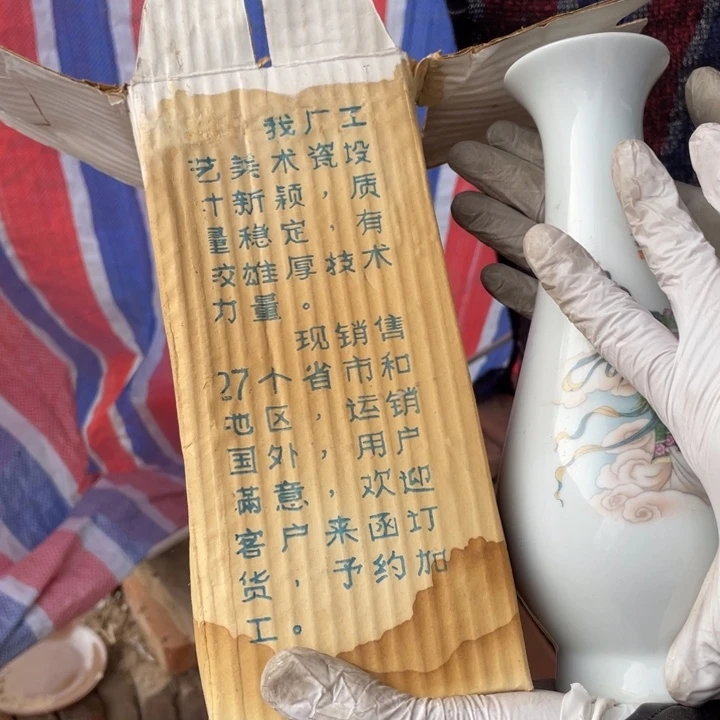 我厂工
艺美术瓷设
计新颖，质
量稳定，有
较雄厚技术
力量。
现销售
27个省市和
地区，运销
国外，用户
满意，欢迎
客户来函订
货，予约加
工。